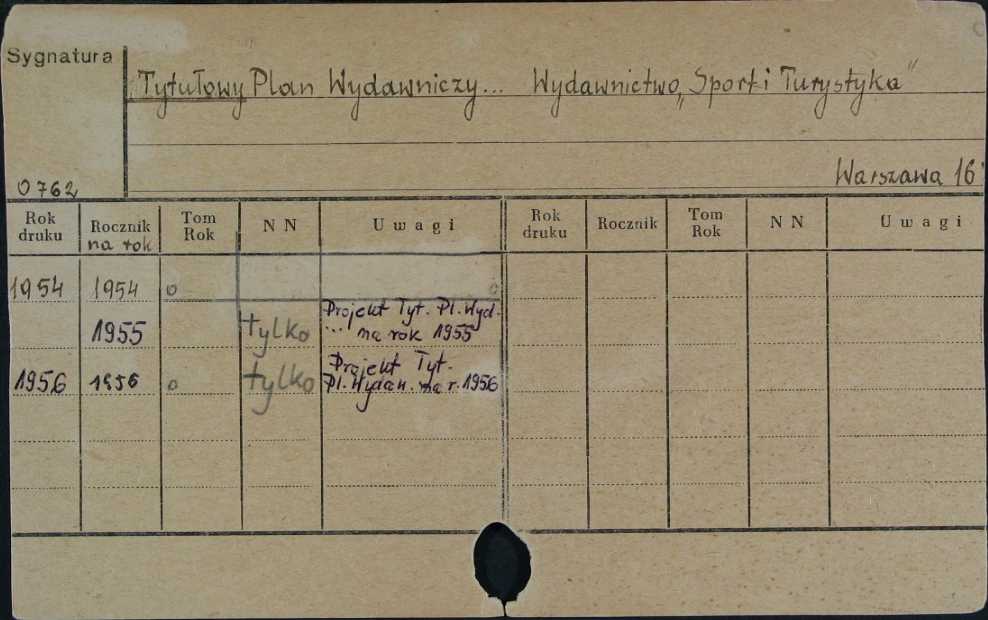 Sygnatura
Tytułowy Plan Wydawniczy... Wydawnictwo „Sport i Turystyka"
Warszawa 16
0762
Rok druku Rocznik na rok Tom Rok NN Uwagi Rok druku Rocznik Tom Rok NN Uwagi
1954 1954 o o
1955 tylko Projekt Tyt. Pl. Wyd.
... na rok 1955
1956 1956 o tylko Projekt Tyt.
Pl. Wydaw. na r. 1956